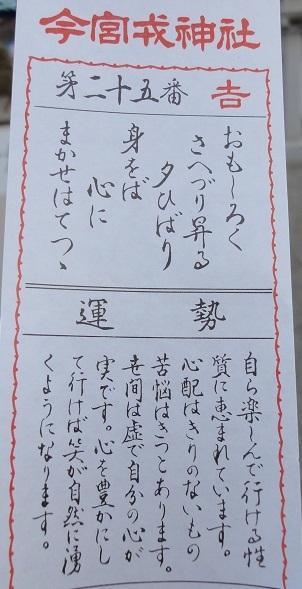 今宮戎神社
第二十五番 吉
おもしろく
さへづり昇る
夕ひばり
身をば
心に
まかせはてつゝ
運勢
自ら楽しんで行ける性
質に恵まれています。
心配はきりのないもの
苦悩はきっとあります。
世間は虚で自分の心が
実です。心を豊かにし
て行けば笑が自然に湧
くようになります。